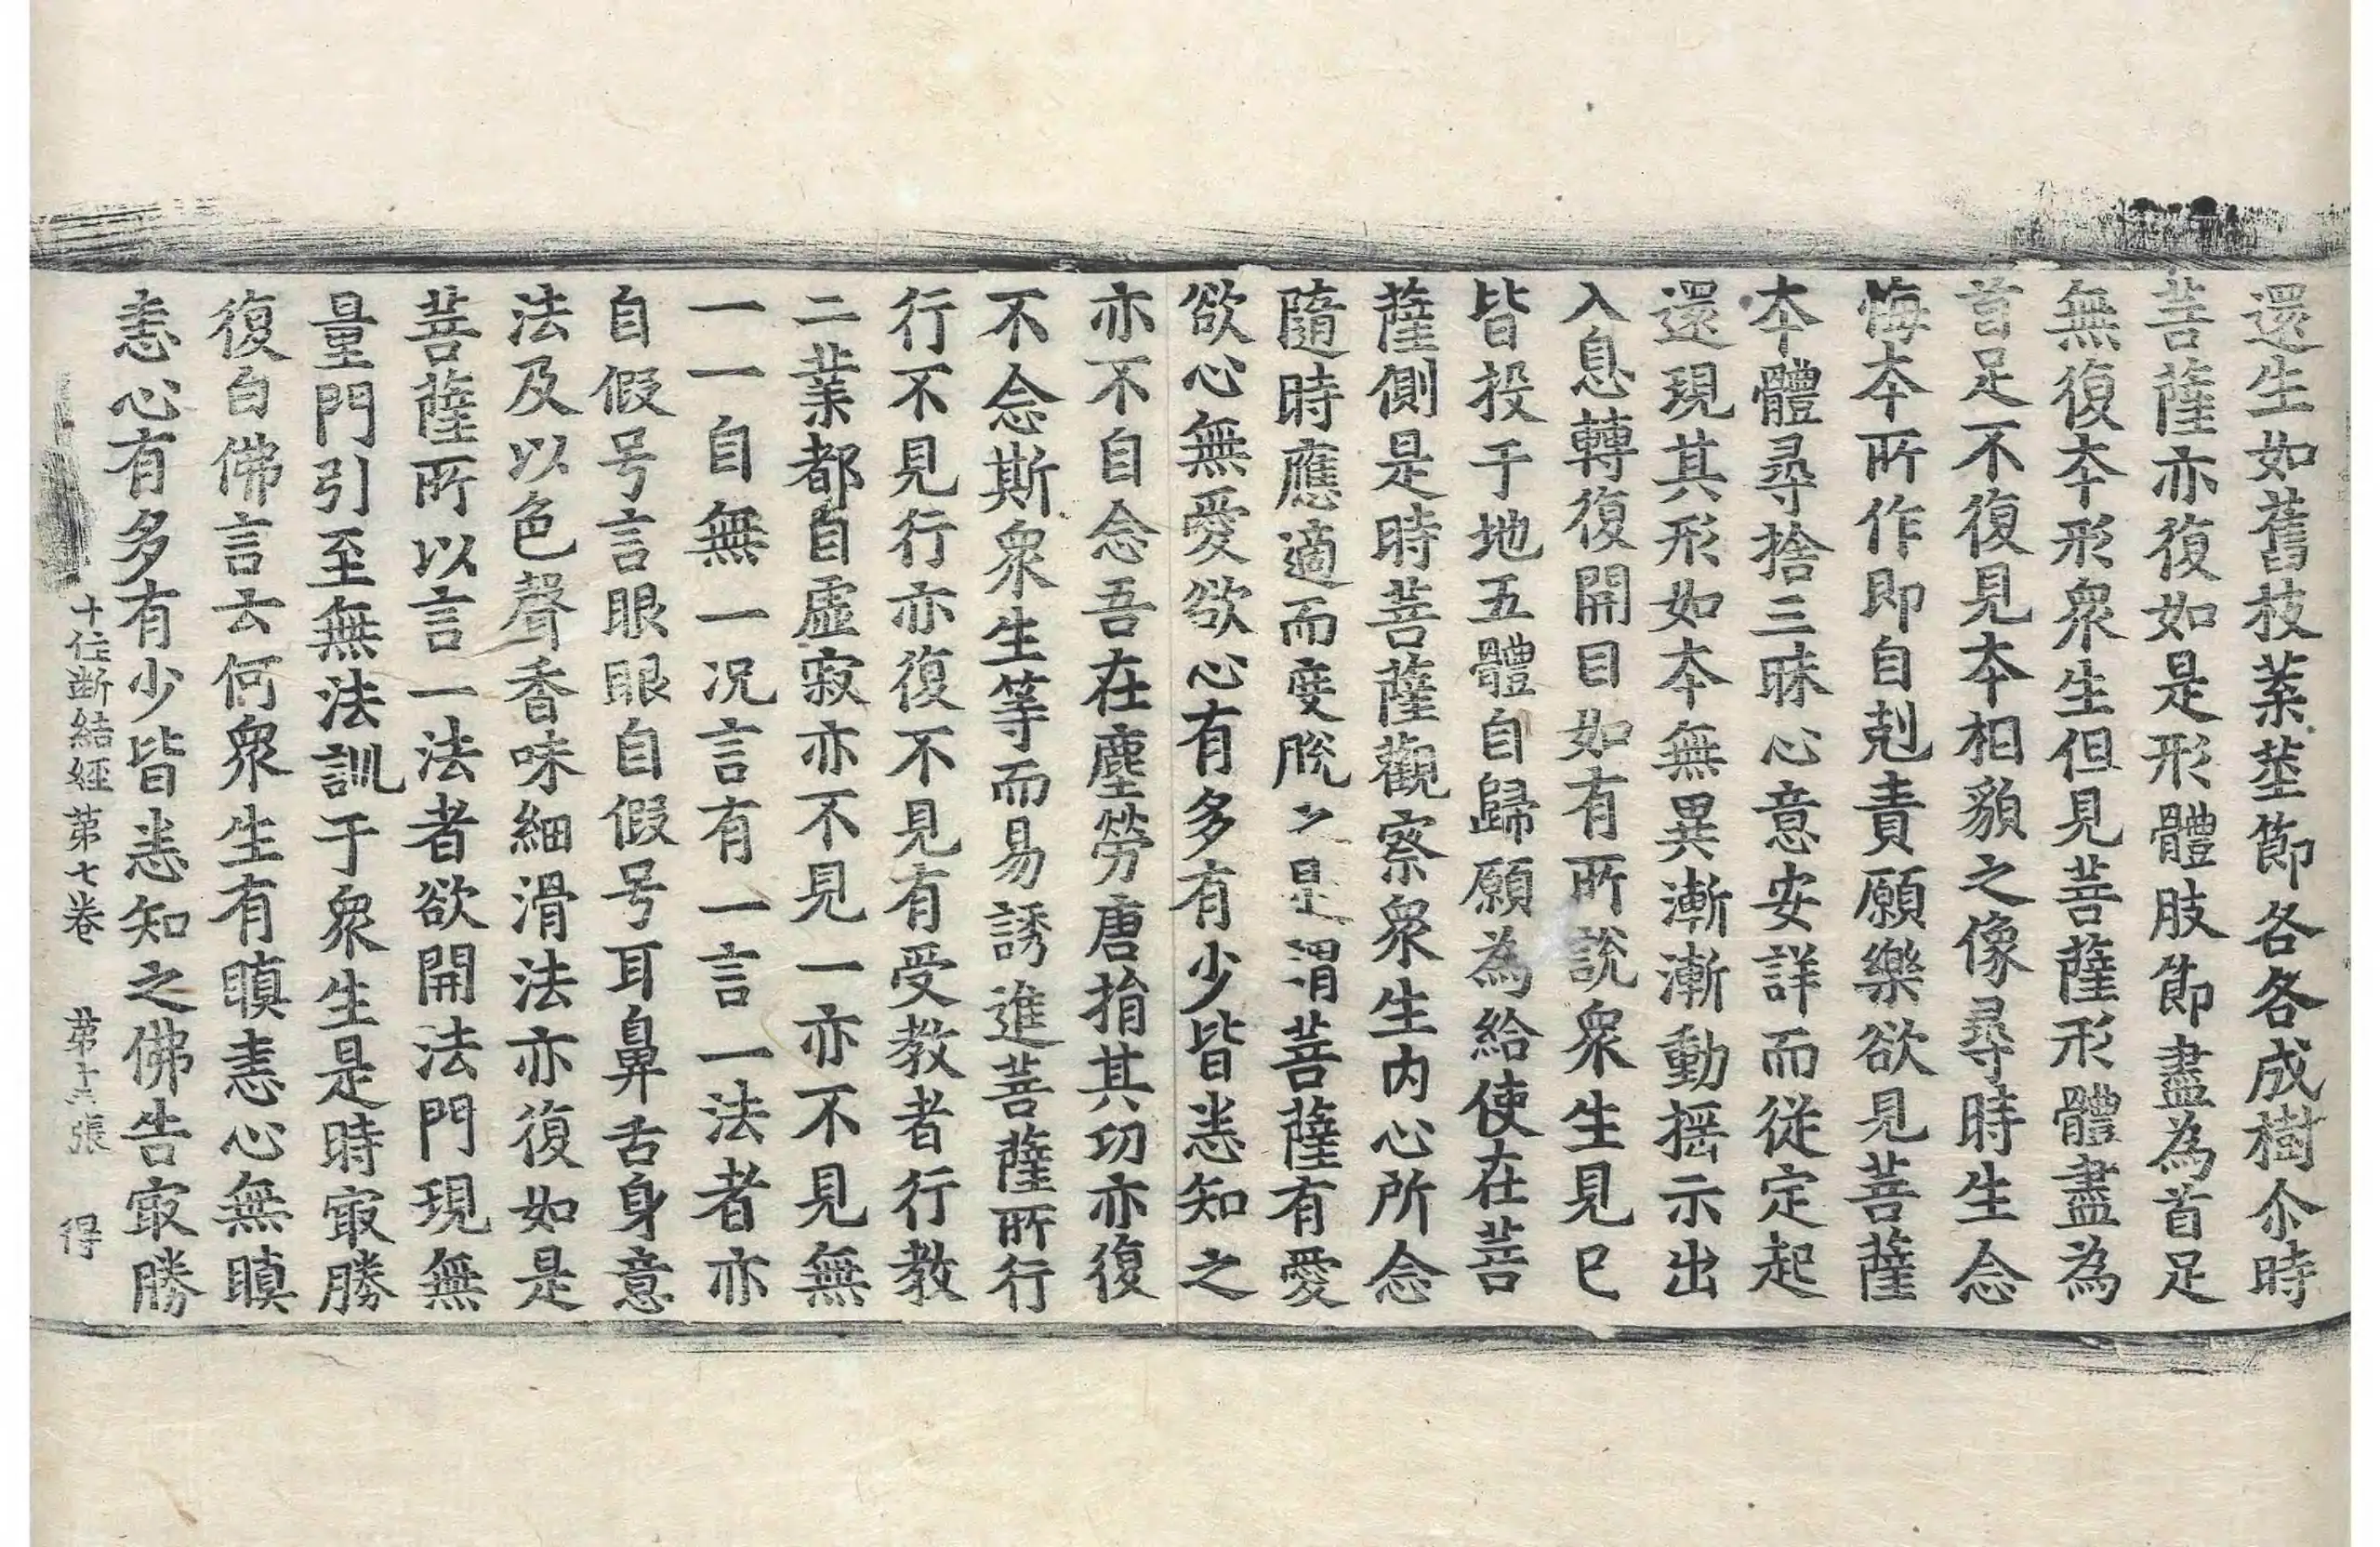 還生如舊枝葉莖節各各成樹尒時
菩薩亦復如是形體肢節盡為首足
無復夲形衆生但見菩薩形體盡為
首足不復見夲相貌之像尋時生念
悔夲所作即自剋責願樂欲見菩薩
夲體尋捨三昧心意安詳而從定起
還現其形如夲無異漸漸動搖示出
入息轉復開目如有所說衆生見已
皆投于地五體自歸願為給使在菩
薩側是時菩薩觀察衆生内心所念
隨時應適而度脫之是謂菩薩有愛
欲心無愛欲心有多有少皆悉知之
亦不自念吾在塵勞唐捐其功亦復
不念斯衆生等而易誘進菩薩所行
行不見行亦復不見有受教者行教
二業都自虛寂亦不見一亦不見無
一一自無一况言有一言一法者亦
自假号言眼眼自假号耳鼻舌身意
法及以色聲香味細滑法亦復如是
菩薩所以言一法者欲開法門現無
量門引至無法訓于衆生是時㝡勝
復白佛言云何衆生有瞋恚心無瞋
恚心有多有少皆悉知之佛告㝡勝
十住斷結經第七卷 第十 張 得